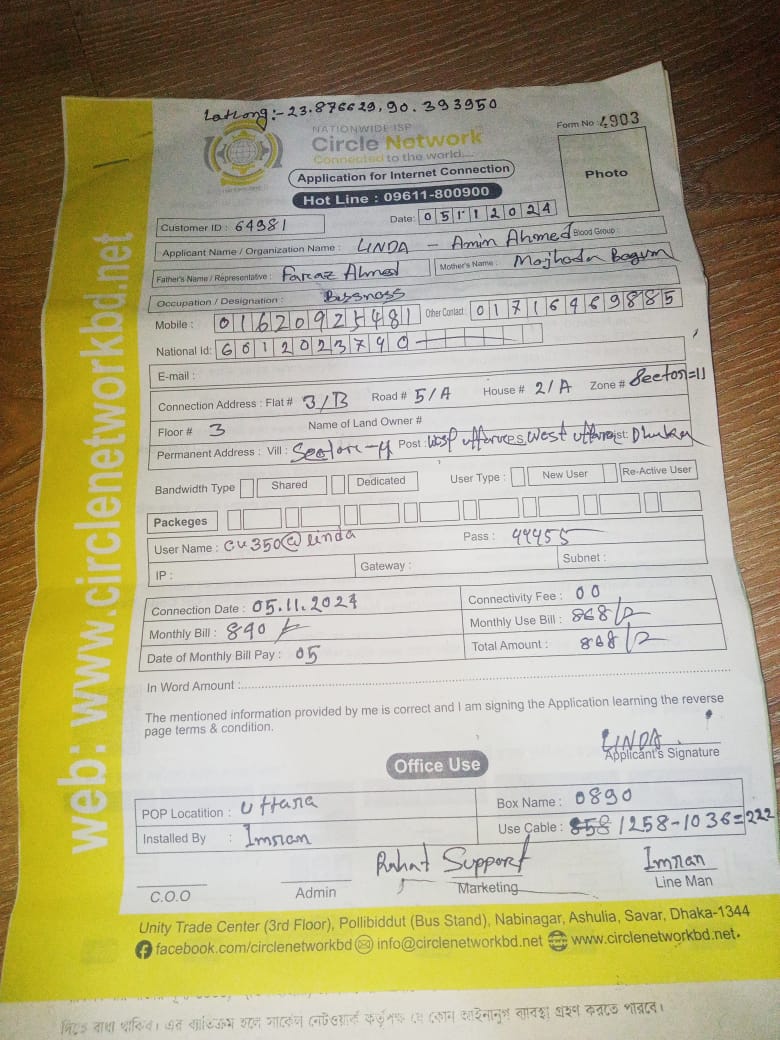 Latlong:- 23.876629, 90.393950
NATIONWIDE ISP
Circle Network
Connected to the world....
Form No 4903
Application for Internet Connection
Photo
Hot Line : 09611-800900
Customer ID : 64981
Date: 05112024
Applicant Name / Organization Name : LINDA - Amin Ahmed Blood Group :
Father's Name / Representative : Faraz Ahmed Mother's Name :
Occupation / Designation : Bissness
Mobile : 01620925481 Other Contact : 01716969885
National Id: 6612023790
E-mail :
Connection Address : Flat # 3/B Road # 5/A House # 2/A Zone # Sector=11
Floor # 3 Name of Land Owner #
Permanent Address : Vill : Post : West Dist: Dhaka
Bandwidth Type Shared Dedicated User Type : New User Re-Active User
Packeges
User Name : cu350@linda Pass : 44455
IP : Gateway : Subnet :
Connection Date : 05.11.2024 Connectivity Fee : 00
Monthly Bill : 840 Monthly Use Bill : 868/2
Date of Monthly Bill Pay : 05 Total Amount : 868/2
In Word Amount :
The mentioned information provided by me is correct and I am signing the Application learning the reverse
page terms & condition.
LINDA
Applicant's Signature
Office Use
POP Locatition : Uttara Box Name : 0890
Installed By : Imran Use Cable : 1258-1036=222
Rahat Support Imran
C.O.O Admin Marketing Line Man
Unity Trade Center (3rd Floor), Pollibiddut (Bus Stand), Nabinagar, Ashulia, Savar, Dhaka-1344
facebook.com/circlenetworkbd info@circlenetworkbd.net www.circlenetworkbd.net
web: www.circlenetworkbd.net
দিতে বাধ্য থাকিব। এর ব্যতিক্রম হলে সার্কেল নেটওয়ার্ক কর্তৃপক্ষ যে কোন আইনানুগ ব্যবস্থা গ্রহণ করতে পারবে।